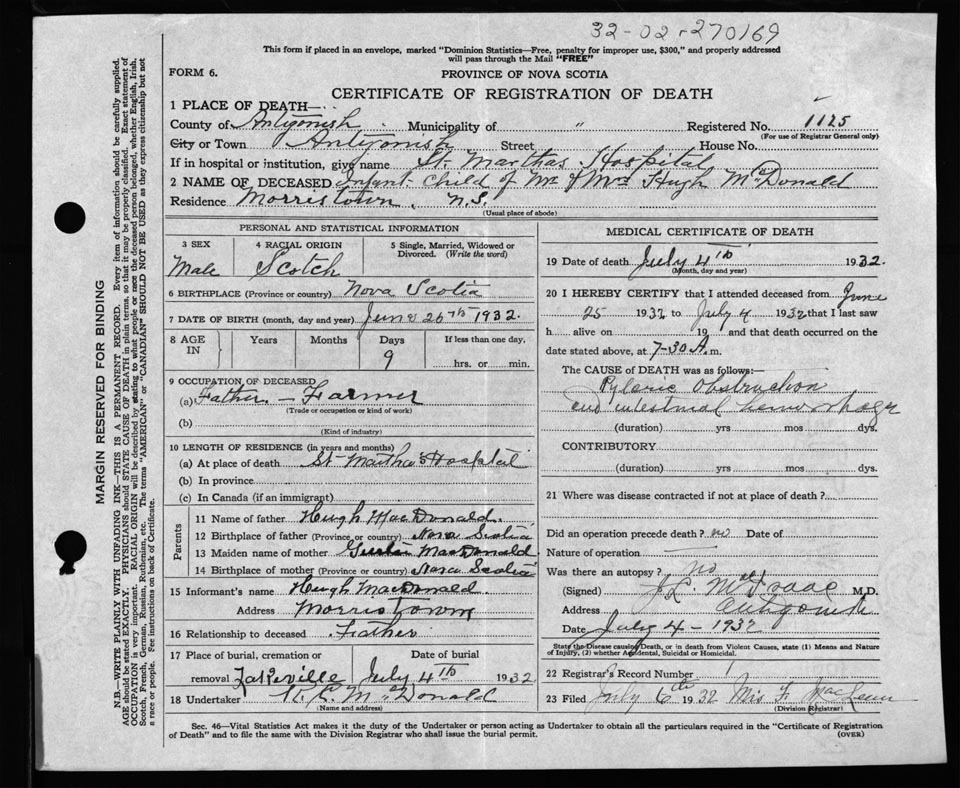 32-02-270169
This form if placed in an envelope, marked "Dominion Statistics—Free, penalty for improper use, $300," and properly addressed
will pass through the Mail "FREE"
FORM 6.
PROVINCE OF NOVA SCOTIA
CERTIFICATE OF REGISTRATION OF DEATH
1 PLACE OF DEATH—
County of Antigonish Municipality of " Registered No. 1125
(For use of Registrar General only)
City or Town Antigonish Street House No.
If in hospital or institution, give name St. Marthas Hospital
2 NAME OF DECEASED Infant Child of Mr & Mrs Hugh McDonald
Residence Morristown, N.S.
(Usual place of abode)
PERSONAL AND STATISTICAL INFORMATION
3 SEX 4 RACIAL ORIGIN 5 Single, Married, Widowed or
Divorced. (Write the word)
Male Scotch
6 BIRTHPLACE (Province or country) Nova Scotia
7 DATE OF BIRTH (month, day and year) June 26th 1932.
8 AGE IN Years Months Days If less than one day,
9 hrs. or min.
9 OCCUPATION OF DECEASED
(a) Father. — Farmer
(Trade or occupation or kind of work)
(b)
(Kind of industry)
10 LENGTH OF RESIDENCE (in years and months)
(a) At place of death St Martha's Hospital
(b) In province
(c) In Canada (if an immigrant)
Parents
11 Name of father Hugh MacDonald.
12 Birthplace of father (Province or country) Nova Scotia
13 Maiden name of mother MacDonald
14 Birthplace of mother (Province or country) Nova Scotia
15 Informant's name Hugh MacDonald
Address Morristown
16 Relationship to deceased Father
17 Place of burial, cremation or Date of burial
removal Lakeville July 4th 1932
18 Undertaker McDonald
(Name and address)
MEDICAL CERTIFICATE OF DEATH
19 Date of death July 4th 1932.
(Month, day and year)
20 I HEREBY CERTIFY that I attended deceased from June
25 1932 to July 4 1932 that I last saw
h alive on 19 and that death occurred on
date stated above, at 7-30 A. m.
The CAUSE OF DEATH was as follows:
Pyloric Obstruction
and intestinal hemorrhage
(duration) yrs mos dys.
CONTRIBUTORY
(duration) yrs mos dys.
21 Where was disease contracted if not at place of death?
Did an operation precede death? no Date of
Nature of operation
Was there an autopsy? no
(Signed) J. L. MacIsaac M.D.
Address Antigonish
Date July 4 – 1932
State the Disease causing Death, or in death from Violent Causes, state (1) Means and Nature
of Injury, (2) whether Accidental, Suicidal or Homicidal.
22 Registrar's Record Number
23 Filed July 6th 1932 Mrs F. MacLean
(Division Registrar)
Sec. 46—Vital Statistics Act makes it the duty of the Undertaker or person acting as Undertaker to obtain all the particulars required in the "Certificate of Registration
of Death" and to file the same with the Division Registrar who shall issue the burial permit.
(OVER)
MARGIN RESERVED FOR BINDING
N.B.—WRITE PLAINLY WITH UNFADING INK—THIS IS A PERMANENT RECORD. Every item of information should be carefully supplied.
AGE should be stated EXACTLY. PHYSICIANS should STATE CAUSE OF DEATH in plain terms, so that it may be properly classified. Exact statement of
OCCUPATION is very important. RACIAL ORIGIN will be described by stating to what people or race the deceased person belonged, whether English, Irish,
Scotch, French, German, Russian, Ruthenian, etc. The terms "AMERICAN" or "CANADIAN" SHOULD NOT BE USED as they express citizenship but not
a race or people. See instructions on back of Certificate.